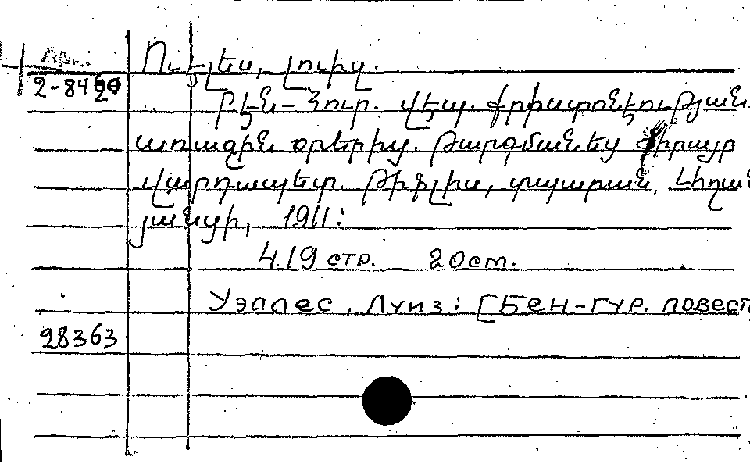 Арм.
2-8420
Ուէլես, Լուիզ.
Բէն-Հուր. վէպ. քրիստոնէութեան
առաջին օրերից. Թարգմանեց Տիրայր
վարդապետ. Թիֆլիս, տպարան,
1911:
419 стр. 20 ст.
Уэллес, Луиз: [Бен-Гур. повест
98363